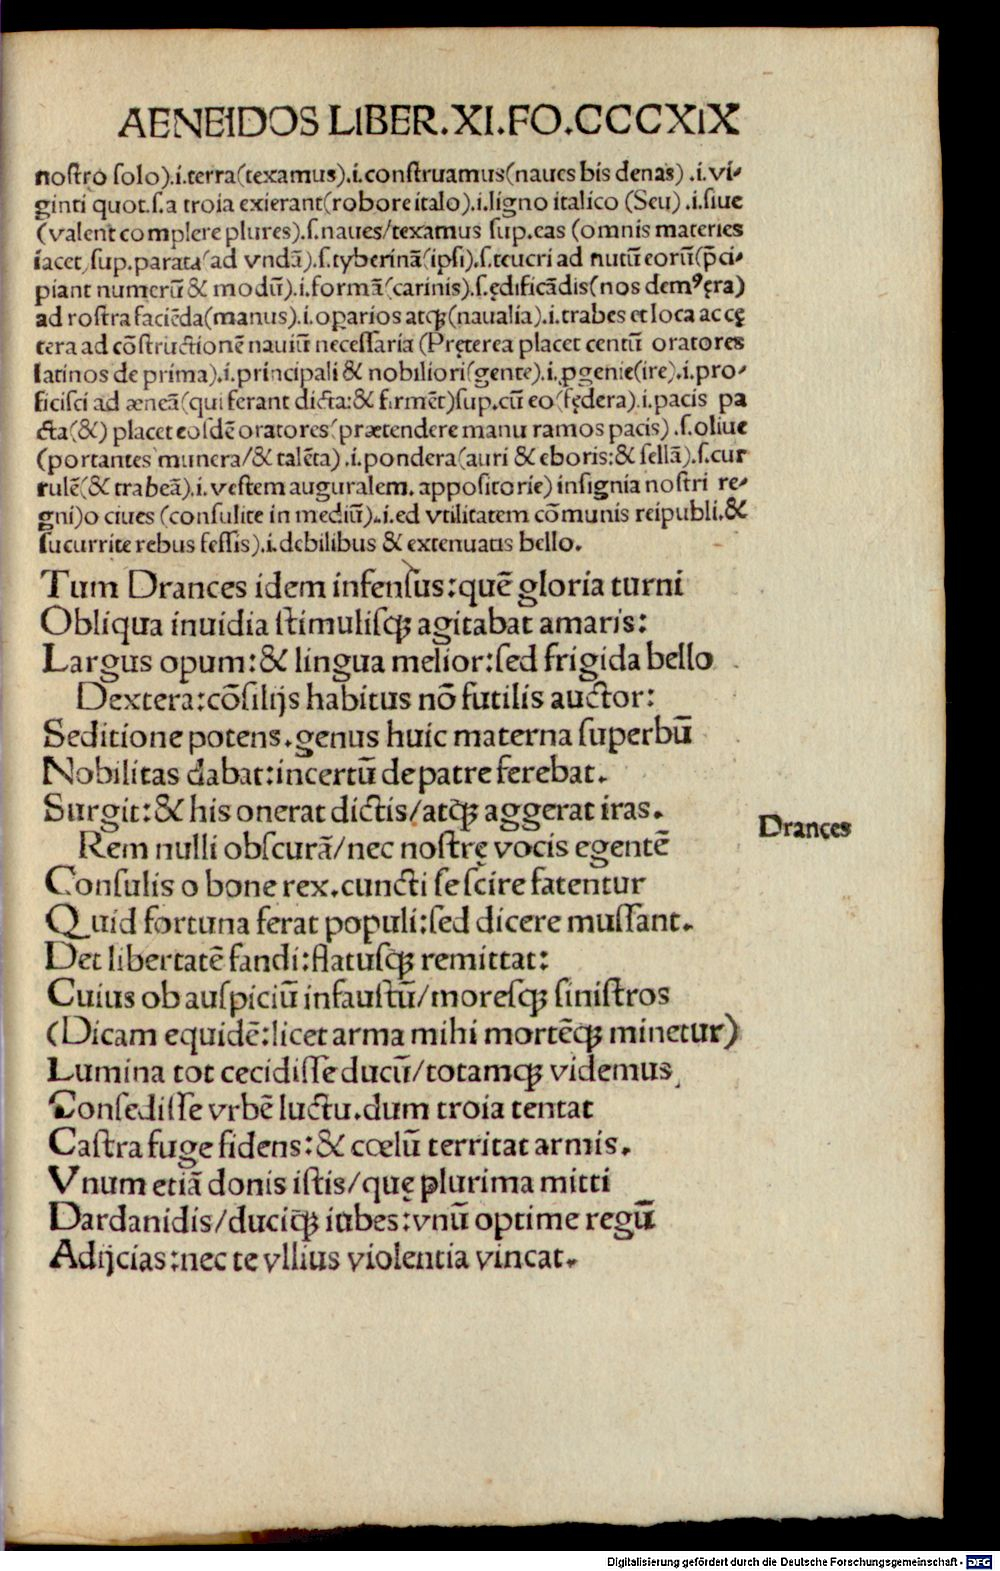 AENEIDOS LIBER.XI.FO.CCCXIX
nostro solo).i.terra(texamus).i.construamus(naues bis denas) .i.vi-
ginti quot.s.a troia exierant(robore italo).i.ligno italico (Seu) .i.siue
(valent complere plures).s.naues/texamus sup.eas (omnis materies
iacet,sup.parata(ad vndā).s.tyberinā(ipsi).s.teucri ad nutū eorū(p̄ci-
piant numerū & modū).i.formā(carinis).s.ędificādis(nos demꝰęra)
ad rostra faciēda(manus).i.oparios atqꝫ(naualia).i.trabes et loca ac cę
tera ad cōstructionē nauiū necessaria (Pręterea placet centū oratores
latinos de prima).i.principali & nobiliori(gente).i.ꝓgenie(ire).i.pro-
ficisci ad æneā(qui ferant dicta:& firmēt)sup.cū eo(fędera).i.pacis pa
cta(&) placet eosdē oratores(prætendere manu ramos pacis) .s.oliue
(portantes munera/& talēta) .i.pondera(auri & eboris:& sellā).s.cur
rulē(& trabeā).i.vestem auguralem. appositorie) insignia nostri re-
gni)o ciues (consulite in mediū)..i.ed vtilitatem cōmunis reipubli.&
sucurrite rebus fessis).i.debilibus & extenuatis bello.
Tum Drances idem infensus:quē gloria turni
Obliqua inuidia stimulisqꝫ agitabat amaris:
Largus opum:& lingua melior:sed frigida bello
Dextera:cōsilijs habitus nō futilis auctor:
Seditione potens.genus huic materna superbū
Nobilitas dabat:incertū de patre ferebat.
Surgit:& his onerat dictis/atqꝫ aggerat iras.
Drances
Rem nulli obscurā/nec nostrę vocis egentē
Consulis o bone rex.cuncti se scire fatentur
Quid fortuna ferat populi:sed dicere mussant.
Det libertatē fandi:flatusqꝫ remittat:
Cuius ob auspiciū infaustū/moresqꝫ sinistros
(Dicam equidē:licet arma mihi mortēqꝫ minetur)
Lumina tot cecidisse ducū/totamqꝫ videmus
Consedisse vrbē luctu.dum troia tentat
Castra fuge fidens:& cœlū territat armis.
Vnum etiā donis istis/quę plurima mitti
Dardanidis/duciqꝫ iubes:vnū optime regū
Adijcias:nec te vllius violentia vincat.
Digitalisierung gefördert durch die Deutsche Forschungsgemeinschaft - DFG